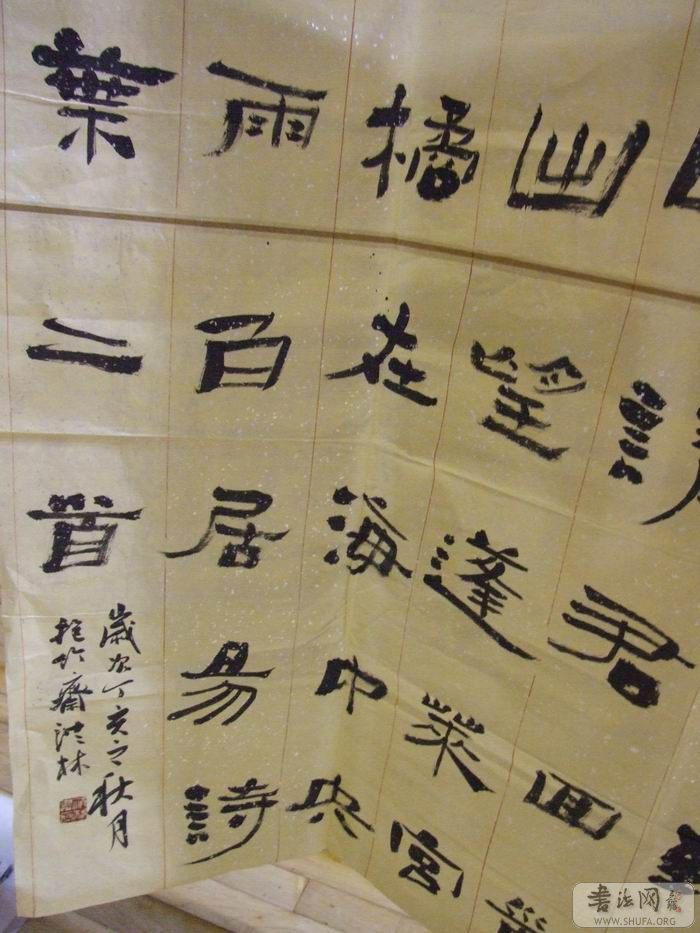 請君回
山望蓬萊宮
橘在海中央
雨白居易詩
葉二首
歲次丁亥之秋月
抱竹齋洪林
书法网
WWW.SHUFA.ORG